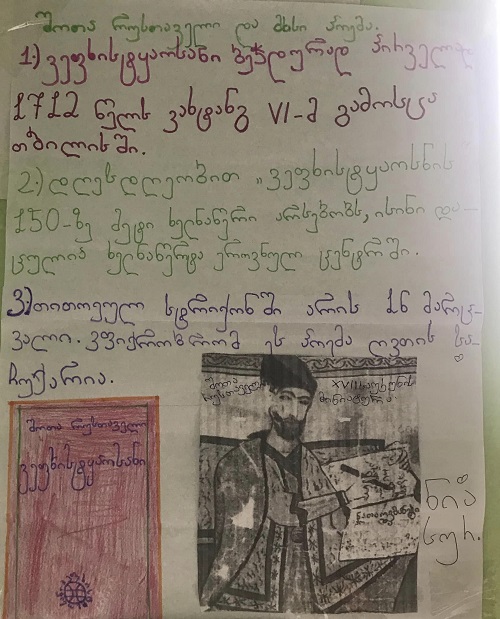 შოთა რუსთაველი და მისი პოემა.
1) ვეფხისტყაოსანი ბეჭდურად პირველად
1712 წელს ვახტანგ VI-მ გამოსცა
თბილისში.
2.) დღესდღეობით „ვეფხისტყაოსნის
150-ზე მეტი ხელნაწერი არსებობს, ისინი და-
ცულია ხელნაწერთა ეროვნულ ცენტრში.
3) თითოეულ სტრიქონში არის 16 მარცვ-
ვალი. ვფიქრობ რომ ეს პოემა ღვთის სა-
ჩუქარია.
შოთა
რუსთაველი
XVII საუკუნის
მინიატურა
შოთა რუსთაველი
ვეფხისტყაოსანი
ნია
სურ.